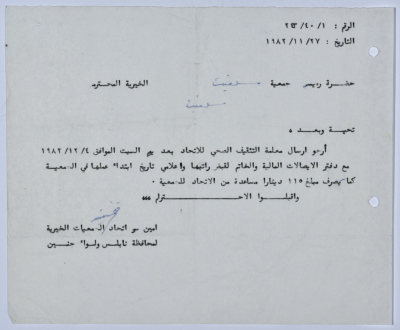 الرقم : ٢٣/٤٠/١
التاريخ : ١٩٨٢/١١/٢٧
حضرة رئيس جمعية سلفيت الخيرية المحترم
سلفيت
تحية وبعد ،
أرجو ارسال معلمة التثقيف الصحي للاتحاد بعد يوم السبت الموافق ١٩٨٢/١٢/٤
مع دفتر الايصالات المالية والخاتم لقبض راتبها واعلامي تاريخ ابتداء عملها في الجمعية
كما يصرف مبلغ ١١٥ دينارا مساعدة من الاتحاد للجمعية .
واقبلوا الاحترام ،،،
امين سر اتحاد الجمعيات الخيرية
لمحافظة نابلس ولواء جنين